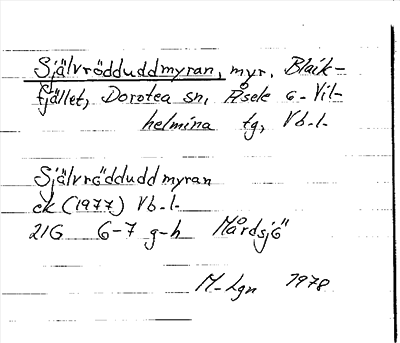 Självrödduddmyran, myr, Blaik-
fjället, Dorotea sn, Åsele o. Vil-
helmina tg, Vb.l.
Självrödduddmyran
ek (1977) Vb.l.
21G 6-7 g-h Mårdsjö
M-Lgn 1978